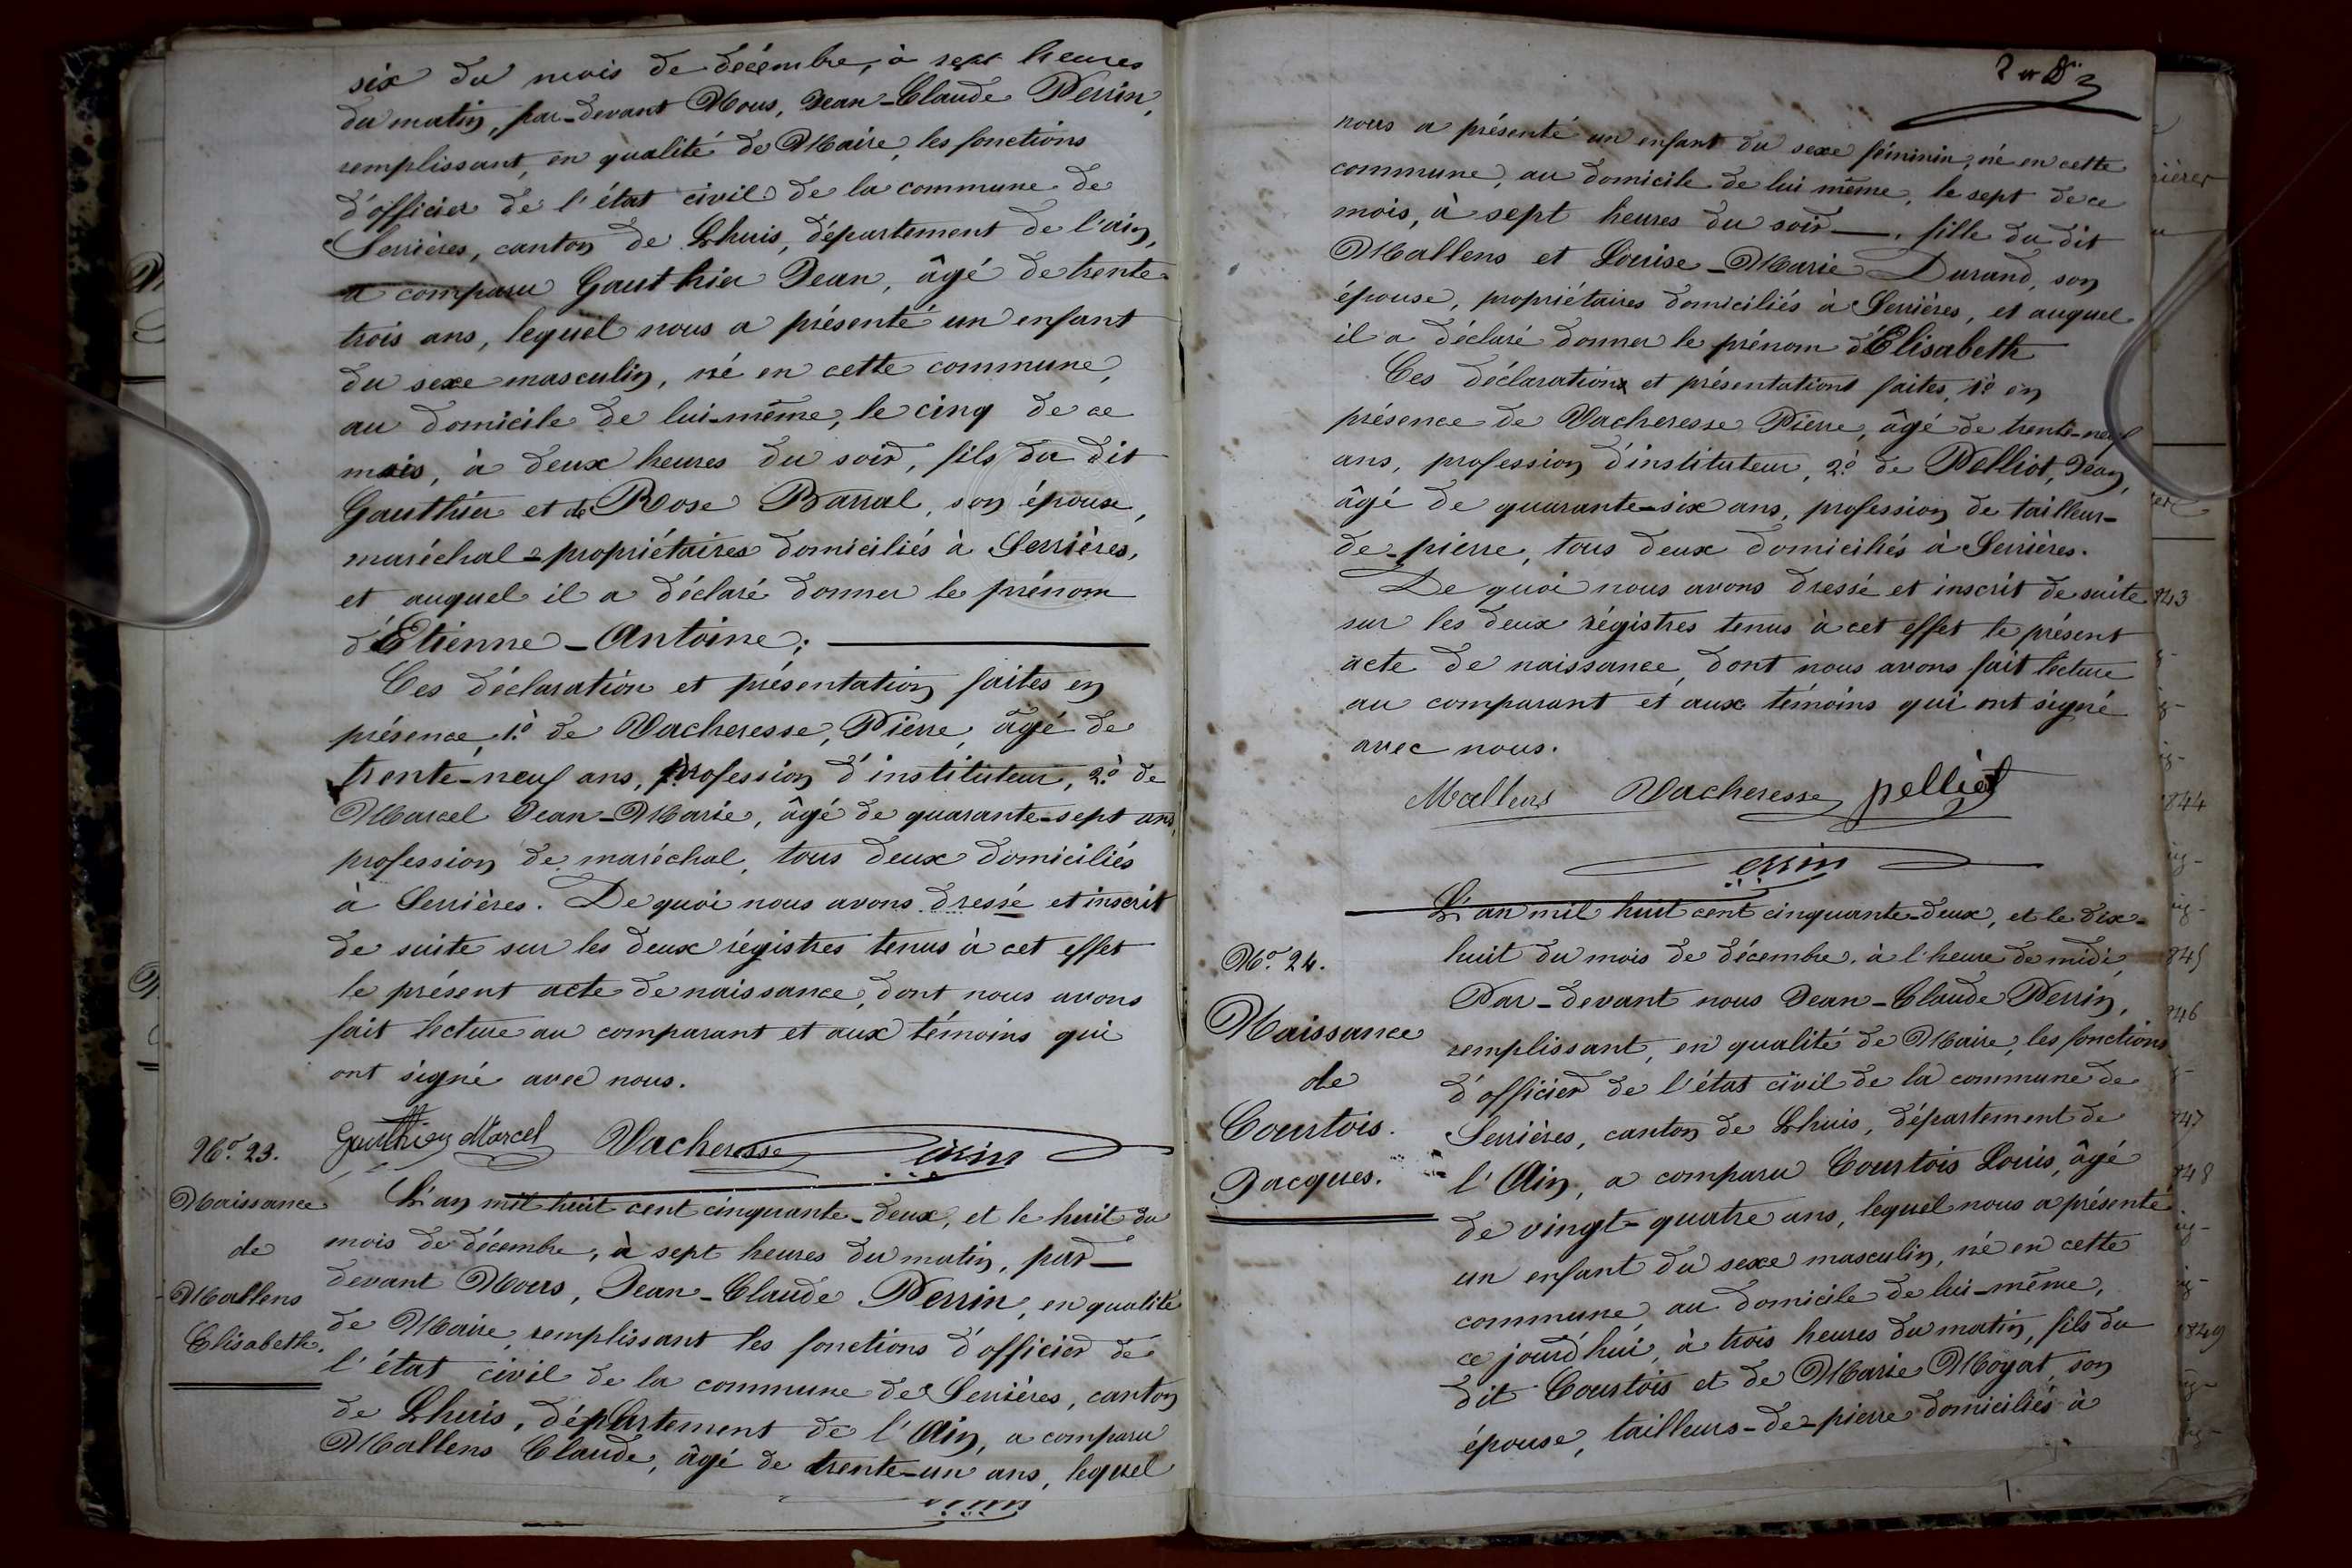 six du mois de décembre, à sept heures
du matin, par-devant Nous, Jean-Claude Perrin,
remplissant, en qualité de Maire, les fonctions
d'officier de l'état civil de la commune de
Serrières, canton de Lhuis, département de l'ain,
a comparu Gauthier Jean, âgé de trente-
trois ans, lequel nous a présenté un enfant
du sexe masculin, né en cette commune,
au domicile de lui-même, le cinq de ce
mois, à deux heures du soir, fils du dit
Gauthier et de Rose Barral, son épouse,
maréchal-propriétaires domiciliés à Serrières,
et auquel il a déclaré donner le prénom
d'Etienne-Antoine;
Ces déclaration et présentation faites en
présence, 1.° de Vacheresse, Pierre, âgé de
trente-neuf ans, profession d'instituteur, 2.° de
Marcel Jean-Marie, âgé de quarante-sept ans,
profession de maréchal, tous deux domiciliés
à Serrières. De quoi nous avons dressé et inscrit
de suite sur les deux régistres tenus à cet effet
le présent acte de naissance, dont nous avons
fait lecture au comparant et aux témoins qui
ont signé avec nous.
Gauthier Marcel Vacheresse Perrin
N.° 23.
Naissance
de
Mallens
Elisabeth.
L'an mil huit cent cinquante-deux, et le huit du
mois de décembre, à sept heures du matin, par-
devant Nous, Jean-Claude Perrin, en qualité
de Maire, remplissant les fonctions d'officier de
l'état civil de la commune de Serrières, canton
de Lhuis, département de l'Ain, a comparu
Mallens Claude, âgé de trente-un ans, lequel
nous a présenté un enfant du sexe féminin, né en cette
commune, au domicile de lui même, le sept de ce
mois, à sept heures du soir, fille du dit
Mallens et Louise-Marie Durand, son
épouse, propriétaires domiciliés à Serrières, et auquel
il a déclaré donner le prénom d'Elisabeth
Ces déclarations et présentations faites, 1.° en
présence de Vacheresse Pierre, âgé de trente-neuf
ans, profession d'instituteur, 2.° de Pelliot, Jean,
âgé de quarante-six ans, profession de tailleur-
de-pierre, tous deux domiciliés à Serrières.
De quoi nous avons dressé et inscrit de suite
sur les deux régistres tenus à cet effet le présent
acte de naissance, dont nous avons fait lecture
au comparant et aux témoins qui ont signé
avec nous.
Mallens Vacheresse pelliot
Perrin
N.° 24.
Naissance
de
Courtois.
Jacques.
L'an mil huit cent cinquante-deux, et le dix-
huit du mois de décembre, à l'heure de midi,
Par-devant nous Jean-Claude Perrin,
remplissant, en qualité de Maire, les fonctions
d'officier de l'état civil de la commune de
Serrières, canton de Lhuis, département de
l'Ain, a comparu Courtois Louis, âgé
de vingt-quatre ans, lequel nous a présenté
un enfant du sexe masculin, né en cette
commune, au domicile de lui-même,
ce jourd'hui, à trois heures du matin, fils du
dit Courtois et de Marie Moyat, son
épouse, tailleurs-de-pierre domiciliés à